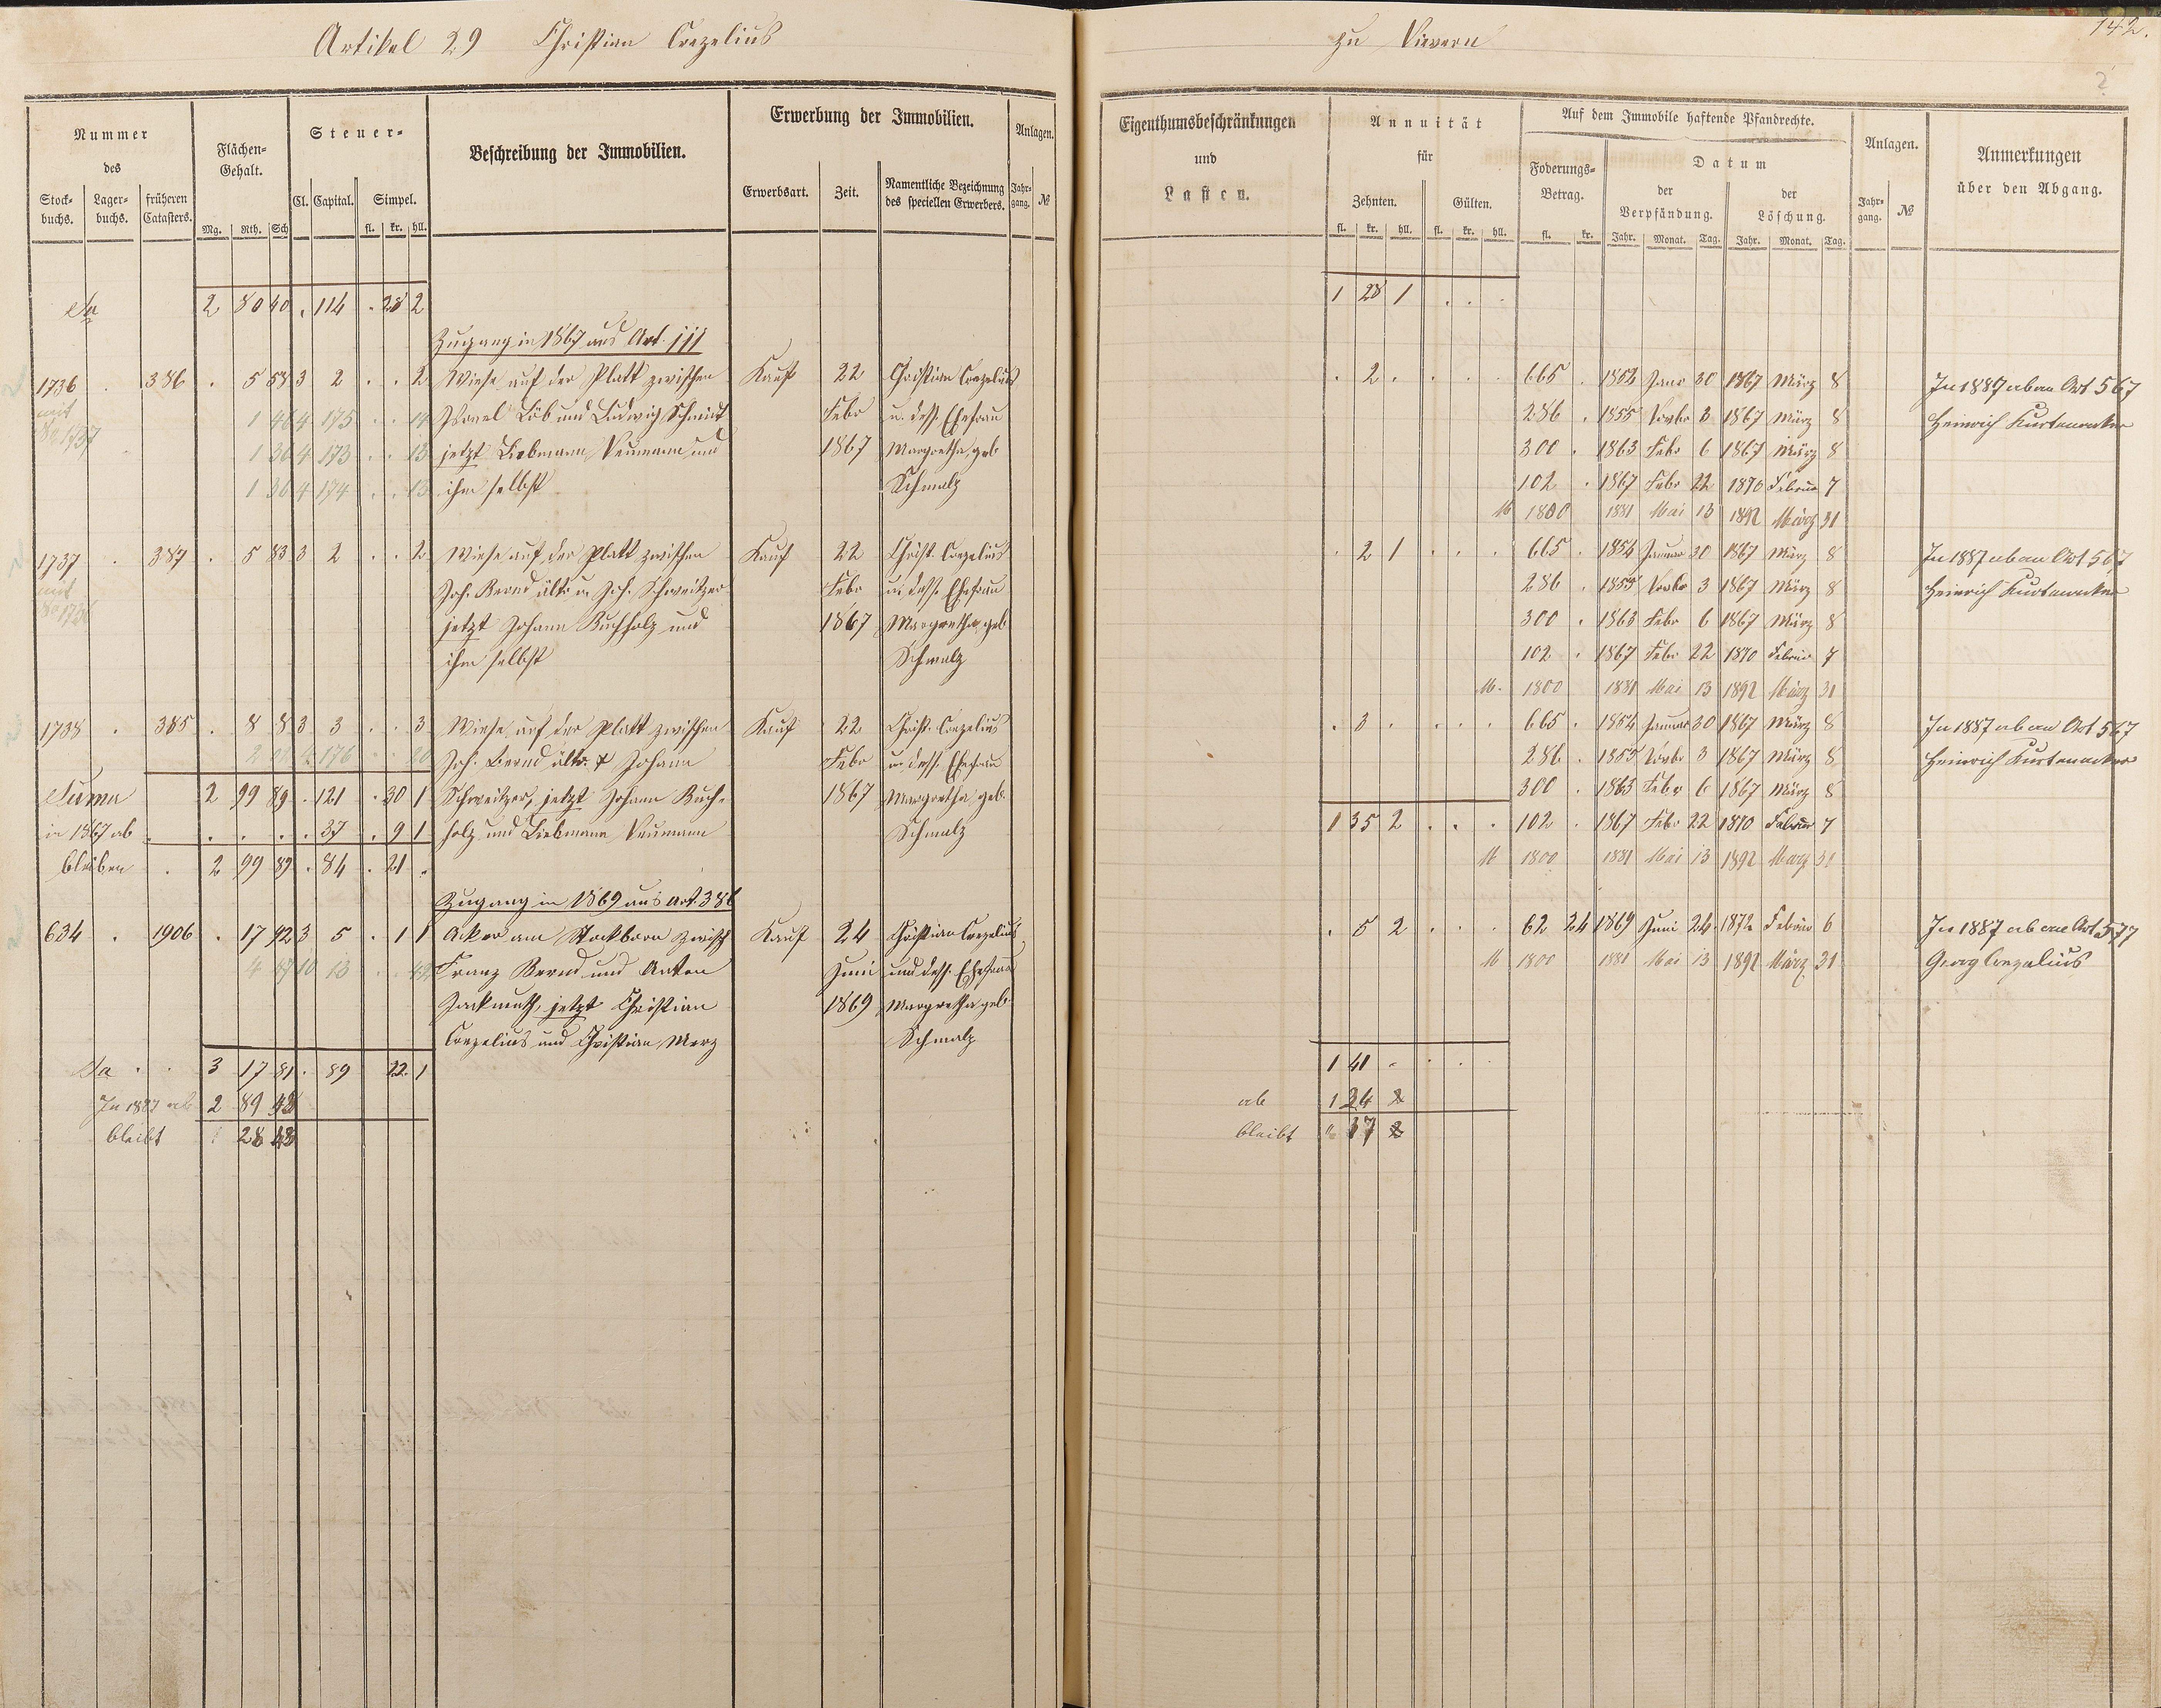 Artikel 29 Christian Crezelius
zu Fievern
142.
2
Nummer des
Stock-buchs. Lager-buchs. früheren Catasters.
Flächen-Gehalt.
Mg. Rth. Sch
Steuer-
Cl. Capital. Simpel.
fl. kr. hll.
Beschreibung der Immobilien.
Erwerbung der Immobilien.
Erwerbsart. Zeit. Namentliche Bezeichnung des speciellen Erwerbers.
Anlagen.
Jahr-gang. №
Eigenthumsbeschränkungen
und
Lasten.
Annuität
für
Zehnten. Gülten.
fl. kr. hll. fl. kr. hll.
Auf dem Immobile haftende Pfandrechte.
Foderungs-Betrag.
fl. kr.
Datum
der Verpfändung. der Löschung.
Jahr. Monat. Tag. Jahr. Monat. Tag.
Anlagen.
Jahr-gang. №
Anmerkungen
über den Abgang.
Sa 2 80 40 . 114 . 28 2 1 28 1 . . .
Zugang in 1867 aus Art. 111
1736 . 386 . 5 58 3 2 . . 2 Wiese auf der Platt zwischen Kauf 22 Christian Crezelius . 2 . . . . 665 . 1854 Janr 30 1867 März 8 In 1887 ab an Art 567
mit 1 46 4 175 . . 14 Israel Löb und Ludwig Schmidt Febr u. dess. Ehefrau 286 . 1855 Novbr 3 1867 März 8 Heinrich Kurtenacker
No 1737 1 36 4 173 . . 13 jetzt Liebmann Neumann und 1867 Margretha geb 300 . 1863 Febr 6 1867 März 8
1 36 4 174 . . 13 ihm selbst Schmalz 102 . 1867 Febr 22 1870 Februar 7
M 1800 1881 Mai 13 1892 März 31
1737 . 387 . 5 83 3 2 . . 2 Wiese auf der Platt zwischen Kauf 22 Christ. Crezelius . 2 1 . . . 665 . 1854 Januar 30 1867 März 8 In 1887 ab an Art 567
mit Joh. Bernd ältr u Joh. Schweitzer Febr u. dess. Ehefrau 286 . 1855 Novbr 3 1867 März 8 Heinrich Kurtenacker
No 1736 jetzt Johann Buchholz und 1867 Margretha geb 300 . 1863 Febr 6 1867 März 8
ihm selbst Schmalz 102 . 1867 Febr 22 1870 Februar 7
M. 1800 1881 Mai 13 1892 März 31
1738 . 385 . 8 8 3 3 . . 3 Wiese auf der Platt zwischen Kauf 22 Christ. Crezelius . 3 . . . . 665 . 1854 Januar 30 1867 März 8 In 1887 ab an Art 567
4 176 20 Joh. Bernd ältr. & Johann Febr u. dess. Ehefrau 286 . 1855 Novbr 3 1867 März 8 Heinrich Kurtenacker
Summa 2 99 89 . 121 . 30 1 Schweitzer, jetzt Johann Buch- 1867 Margretha geb. 300 . 1863 Febr 6 1867 März 8
in 1867 ab . . . . . 37 . 9 1 holz und Liebmann Neumann Schmalz 1 35 2 . . . 102 . 1867 Febr 22 1870 Februar 7
bleiben . 2 99 89 . 84 . 21 . M 1800 1881 Mai 13 1892 März 31
Zugang in 1869 aus Art. 386
634 . 1906 . 17 92 3 5 . 1 1 Acker am Stockborn zwisch Kauf 24 Christian Crezelius . 5 2 . . . 62 24 1869 Juni 24 1872 Februar 6 In 1887 ab an Art. 577
4 87 10 13 Franz Bernd und Anton Juni und dess. Ehefrau M 1800 1881 Mai 13 1892 März 31 Georg Crezelius
Jackmuth, jetzt Christian 1869 Margretha geb.
Crezelius und Christian Merz Schmalz
Sa . . 3 17 81 . 89 22. 1 1 41 . . .
In 1887 ab 2 89 ab 1 24
bleibt 28 bleibt